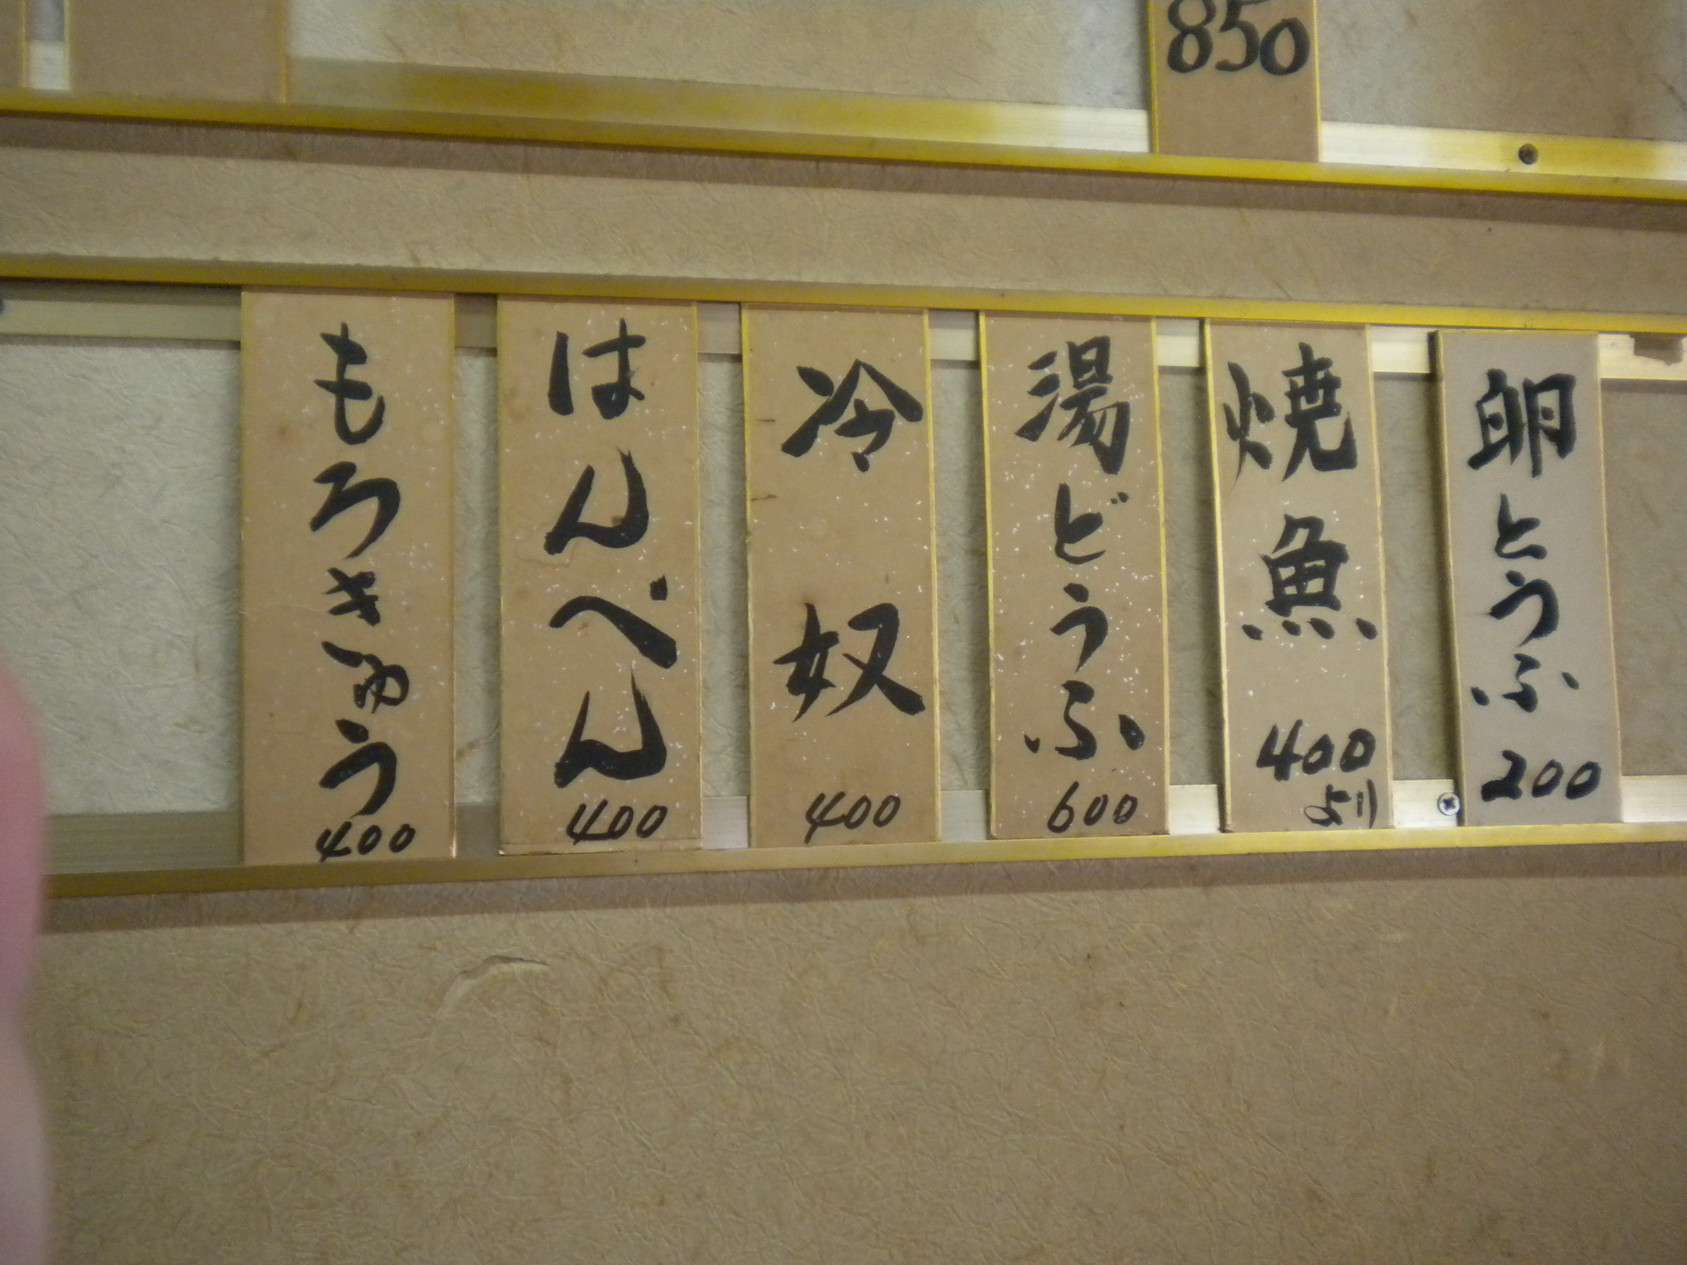 850
卵とうふ
200
焼魚
400
より
湯どうふ
600
冷奴
400
はんぺん
400
もろきゅう
400